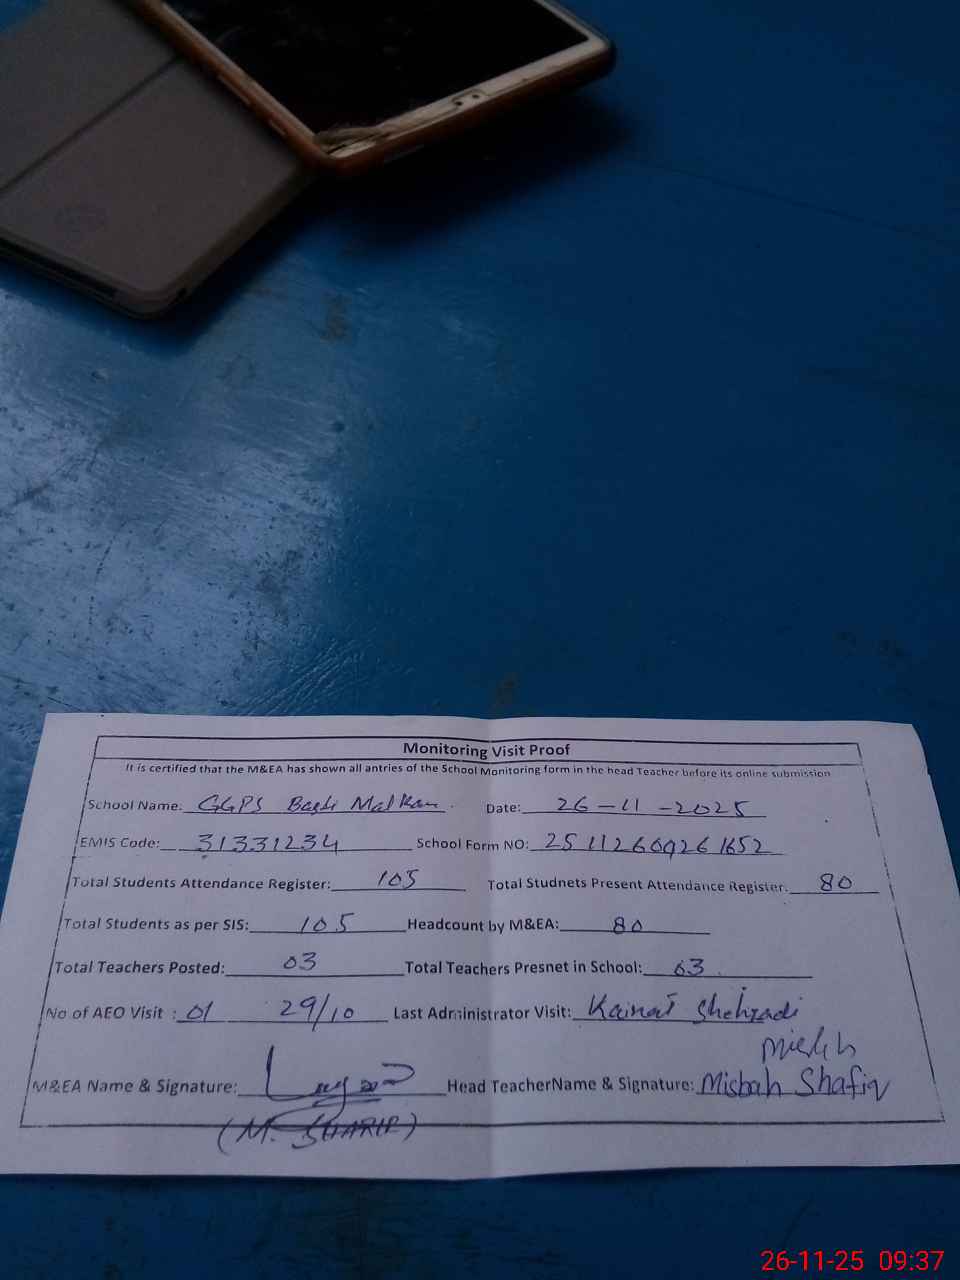 Monitoring Visit Proof
It is certified that the M&EA has shown all antries of the School Monitoring form in the head Teacher before its online submission
School Name: GGPS Basti Malkan Date: 26-11-2025
EMIS Code: 31331234 School Form NO: 25112609261652
Total Students Attendance Register: 105 Total Studnets Present Attendance Register: 80
Total Students as per SIS: 105 Headcount by M&EA: 80
Total Teachers Posted: 03 Total Teachers Presnet in School: 03
No of AEO Visit : 01 29/10 Last Administrator Visit: Kainat Shehzadi
M&EA Name & Signature: Head TeacherName & Signature: Misbah Shafiq
(M. SHARIF)
26-11-25 09:37